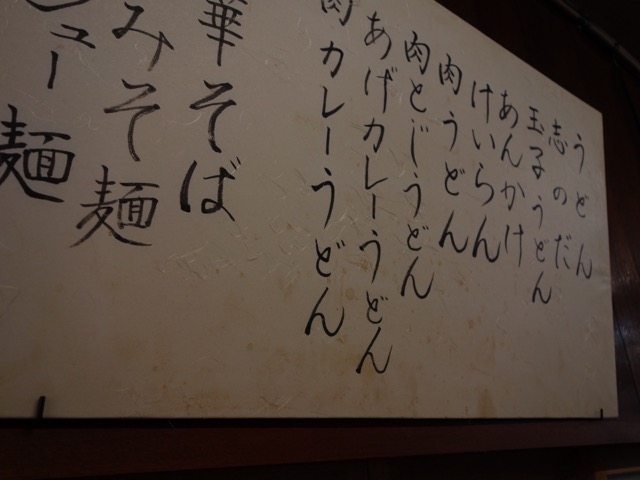 うどん
志の だ
玉子うどん
あんかけ
けいらん
肉うどん
肉とじうどん
あげカレーうどん
肉カレーうどん
華そば
みそ麺
ュー麺